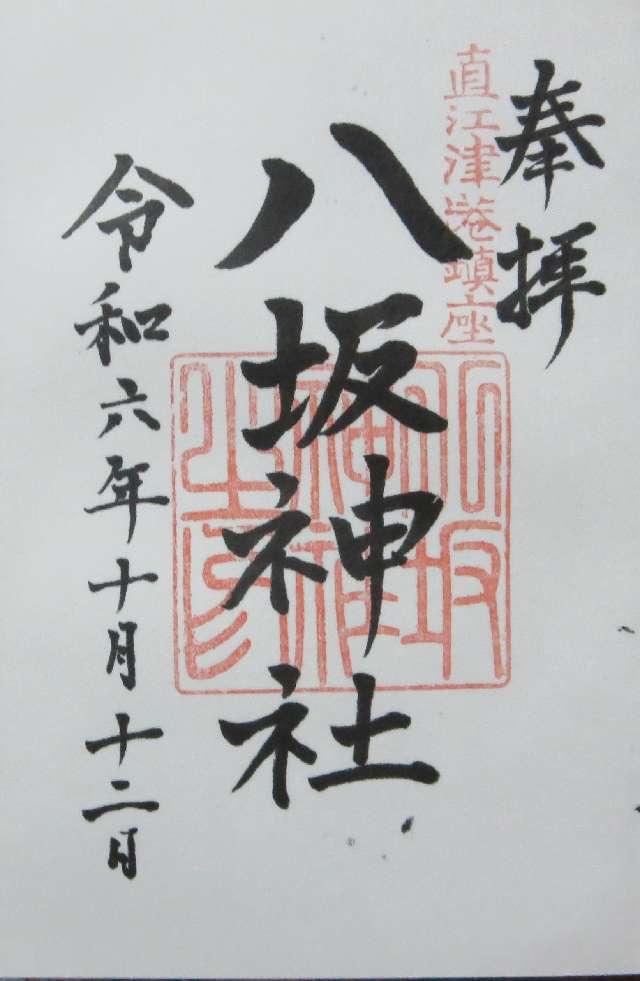 奉拝
直江津港鎮座
八坂神社
八坂神社之印
令和六年十月十二日